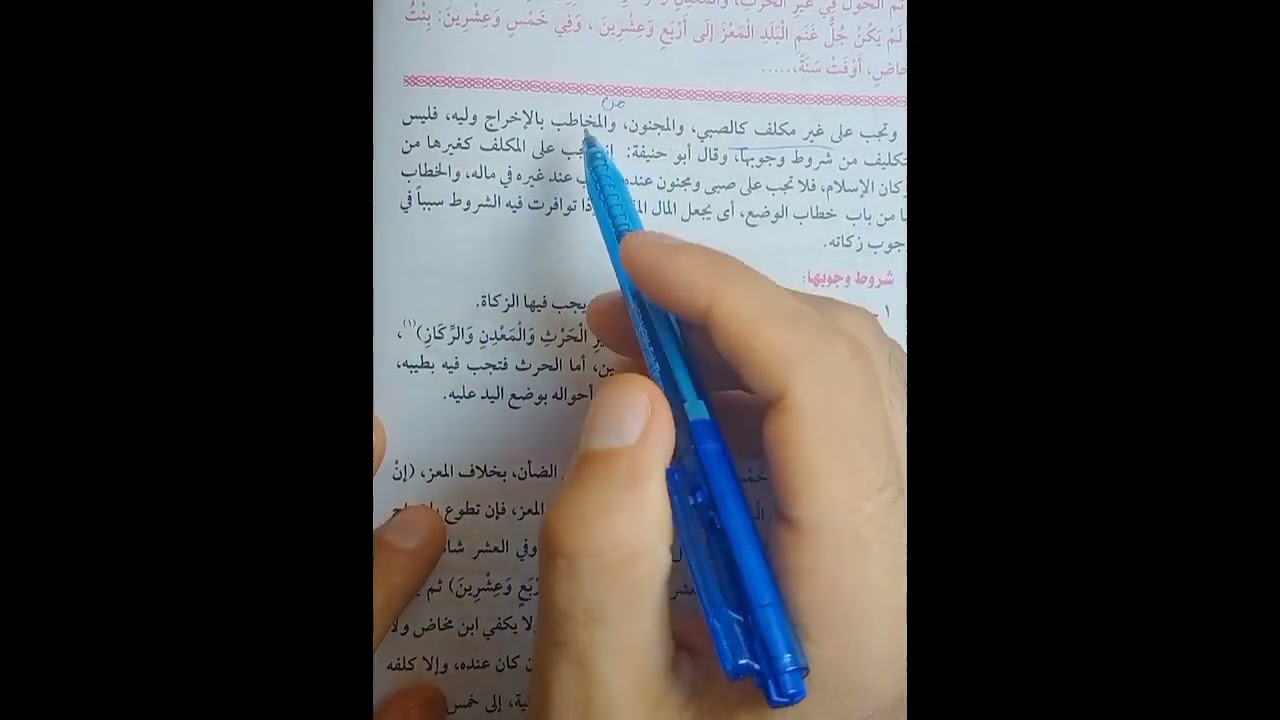 ثم الحول في غير الحرث، والمعدن
لَمْ يَكُنْ جُلُّ غَنَمِ الْبَلَدِ الْمَعْزَ إِلَى أَرْبَعٍ وَعِشْرِينَ ، وَفِي خَمْسٍ وَعِشْرِينَ: بِنْتُ
خاضٍ، أَوْفَتْ سَنَةً،.....
من
وتجب على غير مكلف كالصبي، والمجنون، والمخاطب بالإخراج وليه، فليس
تكليف من شروط وجوبها، وقال أبو حنيفة: على المكلف كغيرها من
ركان الإسلام، فلا تجب على صبى ومجنون عنده عند غيره في ماله، والخطاب
من باب خطاب الوضع، أى يجعل المال توافرت فيه الشروط سبباً في
جوب زكاته.
شروط وجوبها:
١ - يجب فيها الزكاة.
الْحَرْثِ وَالْمَعْدِنِ وَالرِّكَازِ)(١)،
أما الحرث فتجب فيه بطيبه،
أحواله بوضع اليد عليه.
الضأن، بخلاف المعز، (إنْ
المعز، فإن تطوع
وفي العشر
وَعِشْرِينَ) ثم
لا يكفي ابن مخاض ولا
كان عنده، وإلا كلفه
إلى خمس